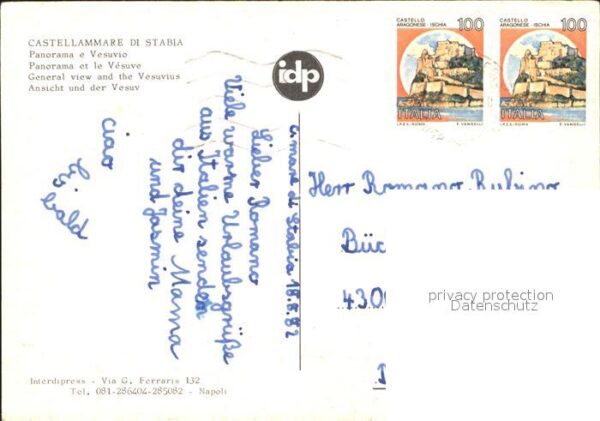 CASTELLAMMARE DI STABIA
Panorama e Vesuvio
Panorama et le Vésuve
General view and the Vesuvius
Ansicht und der Vesuv
idp
CASTELLO
ARAGONESE - ISCHIA
100
ITALIA
I.P.Z.S.-ROMA
E. VANGELLI
CASTELLO
ARAGONESE - ISCHIA
100
ITALIA
I.P.Z.S.-ROMA
E. VANGELLI
c/mare di Stabia 18.8.82
Lieber Romano
Viele warme Urlaubsgrüße
aus Italien senden
dir deine Mama
und Jasmin
ciao
bald
Herr Romano Rubino
Büc
4300
privacy protection
Datenschutz
Interdipress - Via G. Ferraris 132
Tel. 081-286404-285082 - Napoli